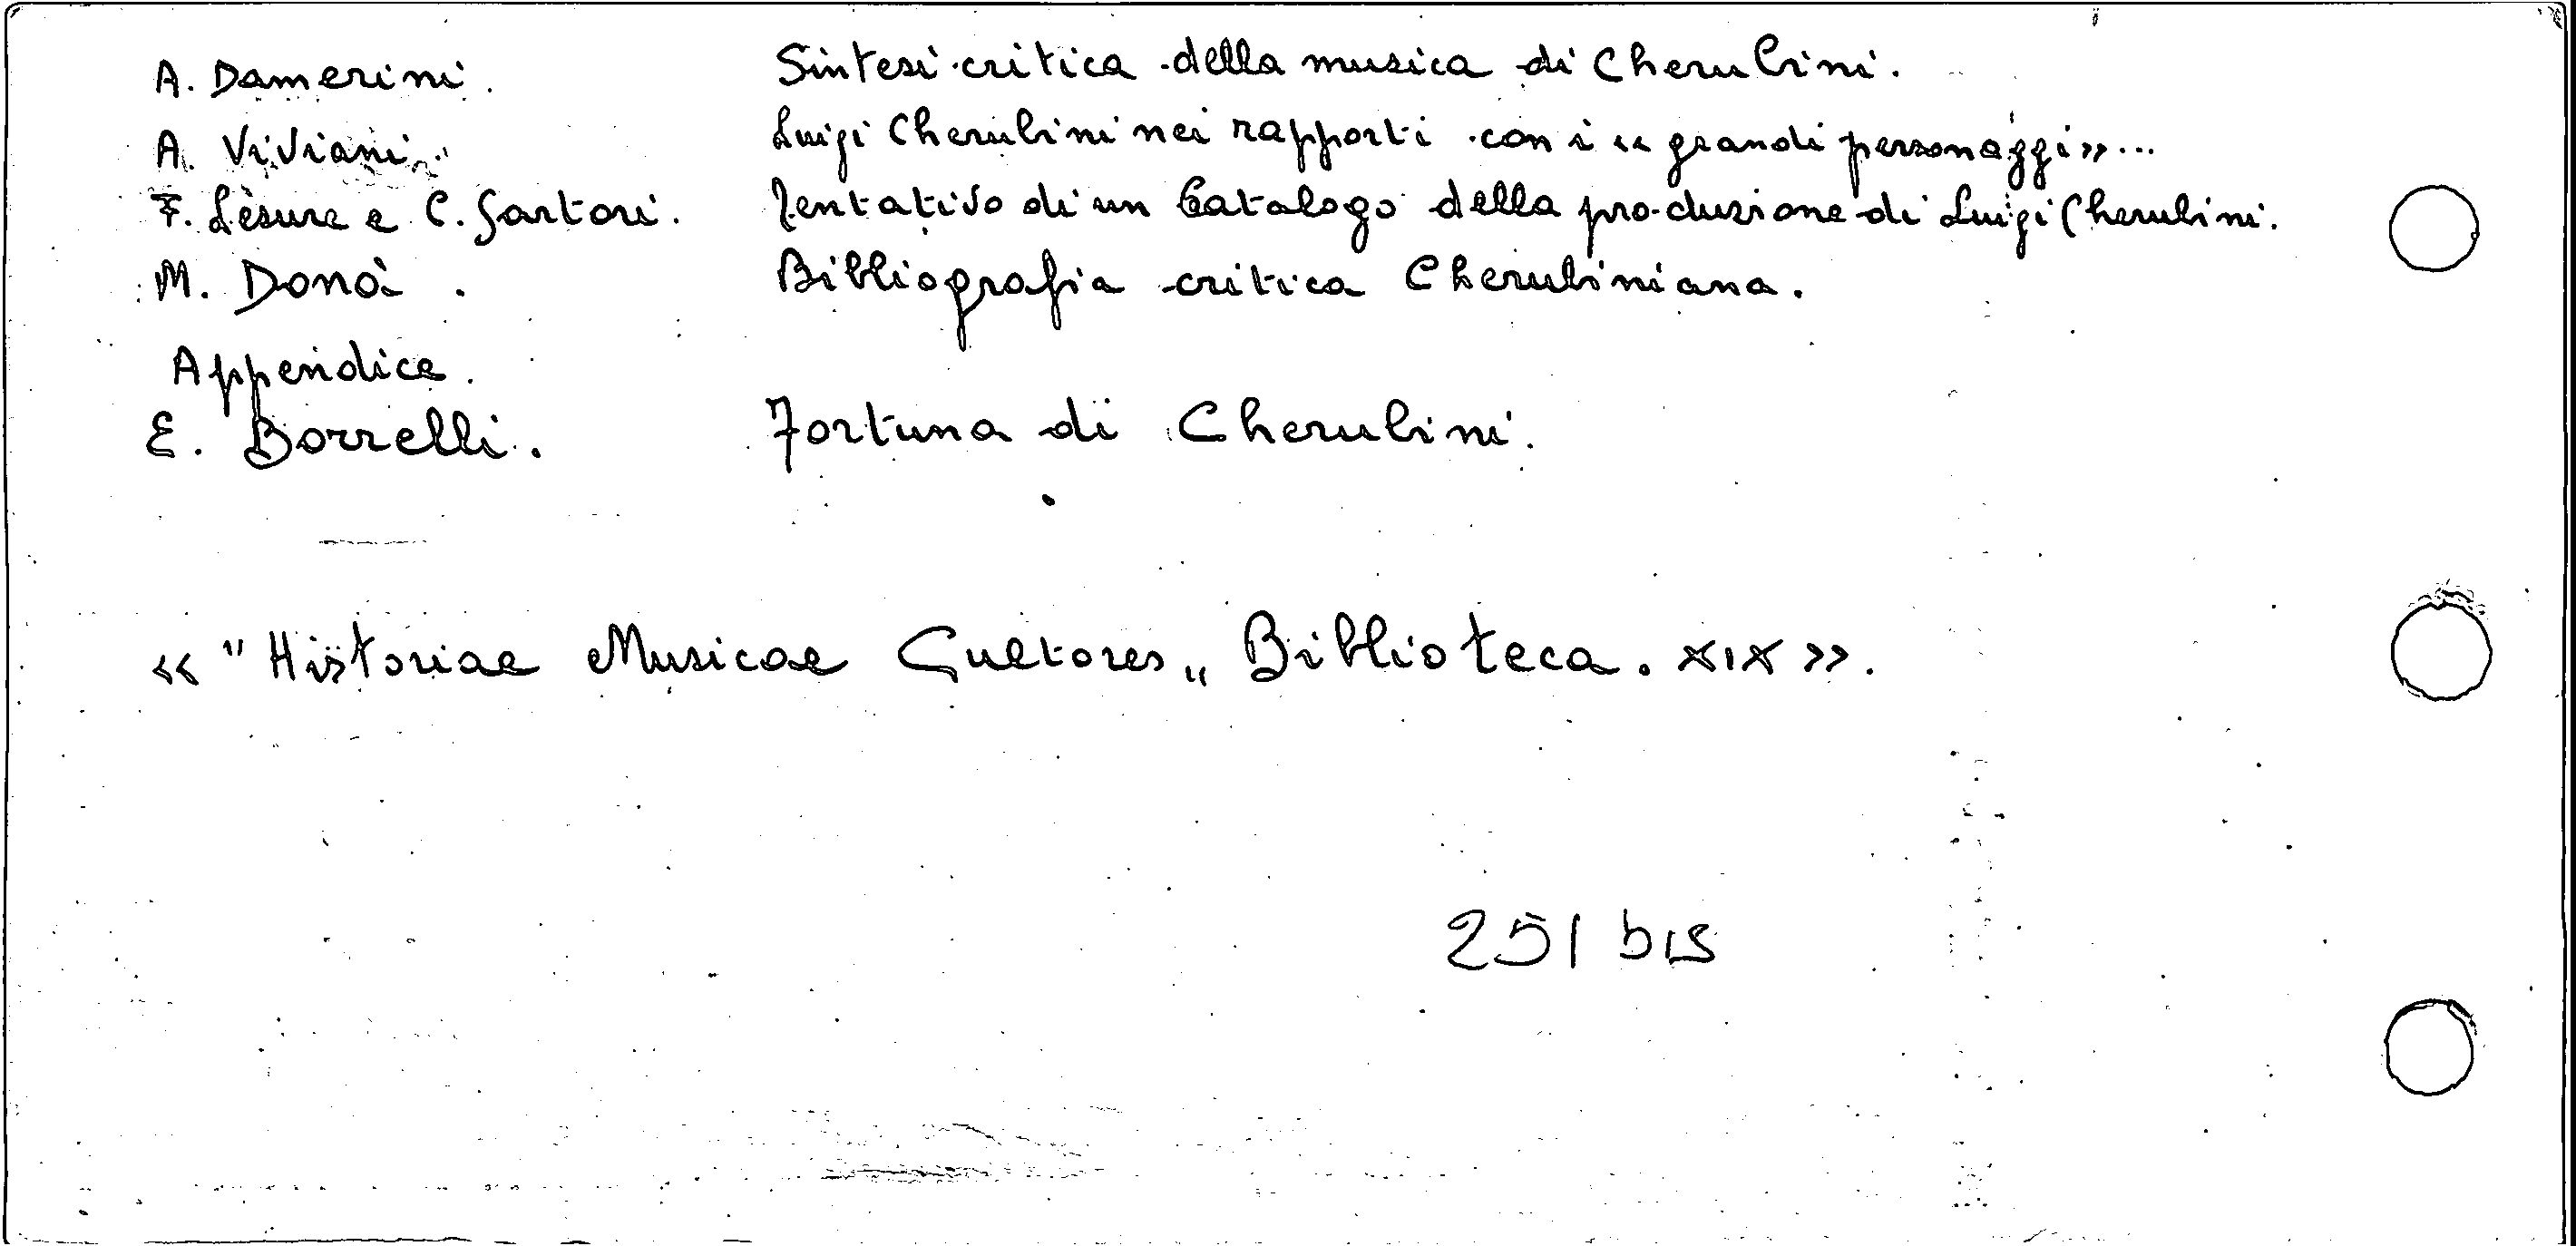 A. Damerini. Sintesi critica della musica di Cherubini.
A. Viviani. Luigi Cherubini nei rapporti con i «grandi personaggi»...
F. Lèsure e C. Sartori. Tentativo di un Catalogo della produzione di Luigi Cherubini.
M. Donà. Bibliografia critica Cherubiniana.
Appendice.
E. Borrelli. Fortuna di Cherubini.
« "Historiae Musicae Cultores„ Biblioteca. XIX ».
251 bis